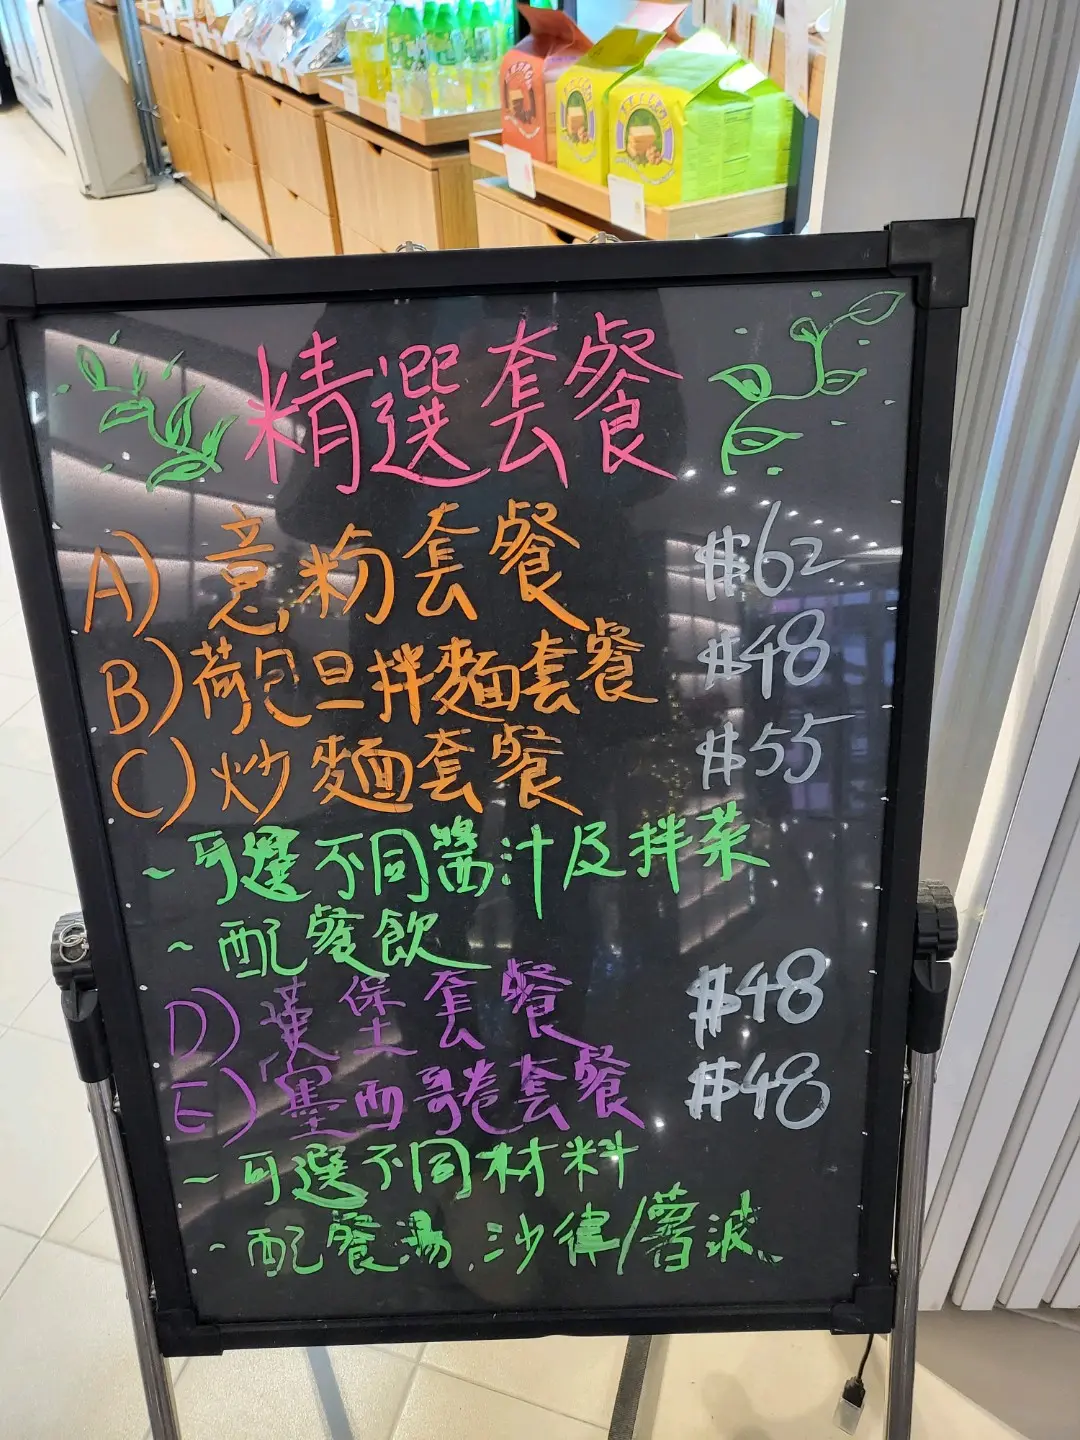 精選套餐
A) 意粉套餐 $62
B) 荷包旦拌麵套餐 $48
C) 炒麵套餐 $55
~可選不同醬汁及拌菜
~配餐飲
D) 漢堡套餐 $48
E) 墨西哥卷套餐 $48
~可選不同材料
~配餐湯,沙律/薯波